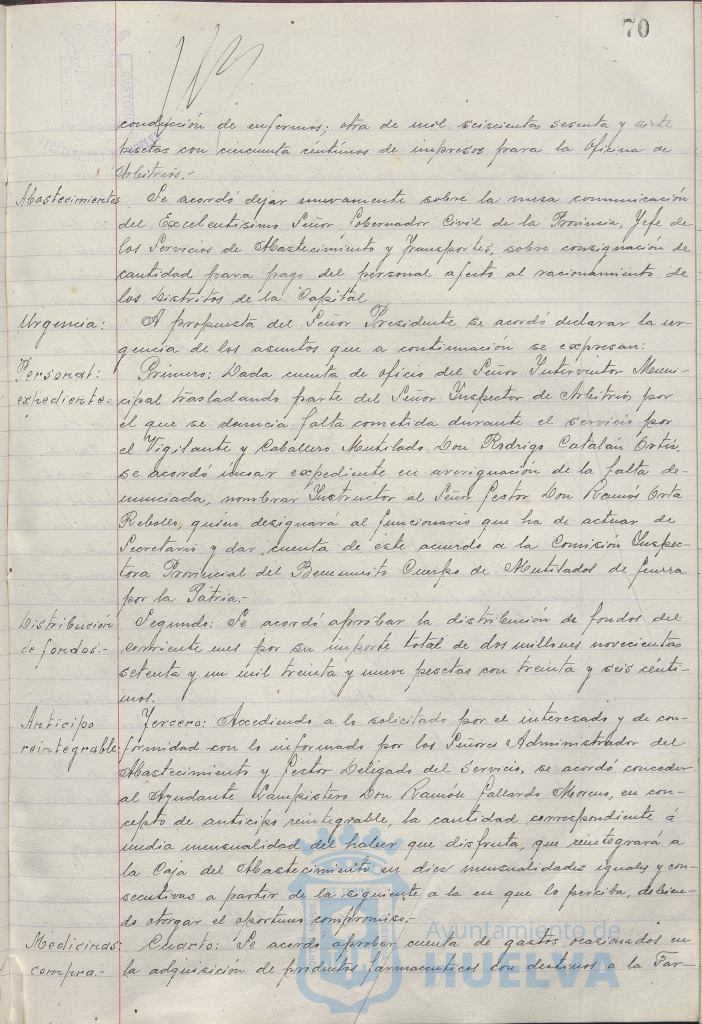 70
conducción de enfermos; otra de mil seiscientas sesenta y siete
pesetas con cincuenta céntimos de impresos para la Oficina de
Arbitrios.-
Abastecimientos Se acordó dejar nuevamente sobre la mesa comunicación
del Excelentísimo Señor Gobernador Civil de la Provincia, Jefe de
los Servicios de Abastecimiento y Transportes, sobre consignación de
cantidad para pago del personal afecto al racionamiento de
los Distritos de la Capital
Urgencia: A propuesta del Señor Presidente se acordó declarar la ur-
gencia de los asuntos que a continuación se expresan:
Personal: Primero: Dada cuenta de oficio del Señor Interventor Muni-
expediente: cipal trasladando parte del Señor Inspector de Arbitrios por
el que se denuncia falta cometida durante el servicio por
el Vigilante y Caballero Mutilado Don Rodrigo Catalán Ortiz,
se acordó incoar expediente en averiguación de la falta de-
nunciada, nombrar Instructor al Señor Gestor Don Ramón Orta
Rebollo, quien designará al funcionario que ha de actuar de
Secretario y dar cuenta de éste acuerdo a la Comisión Inspec-
tora Provincial del Benemérito Cuerpo de Mutilados de Guerra
por la Patria.-
Distribución Segundo: Se acordó aprobar la distribución de fondos del
de fondos.- corriente mes por su importe total de dos millones novecientas
setenta y un mil treinta y nueve pesetas con treinta y seis cénti-
mos.
Anticipo Tercero: Accediendo a lo solicitado por el interesado y de con-
reintegrable: formidad con lo informado por los Señores Administrador del
Abastecimiento y Gestor Delegado del Servicio, se acordó conceder
al Ayudante Lampistero Don Ramón Gallardo Moreno, en con-
cepto de anticipo reintegrable, la cantidad correspondiente á
media mensualidad del haber que disfruta, que reintegrará a
la Caja del Abastecimiento en diez mensualidades iguales y con-
secutivas a partir de la siguiente a la en que lo perciba, debien-
do otorgar el oportuno compromiso.-
Medicinas: Cuarto: Se acordó aprobar cuenta de gastos ocasionados en
compra.- la adquisición de productos farmaceuticos con destinos a la Far-
Ayuntamiento de
HUELVA